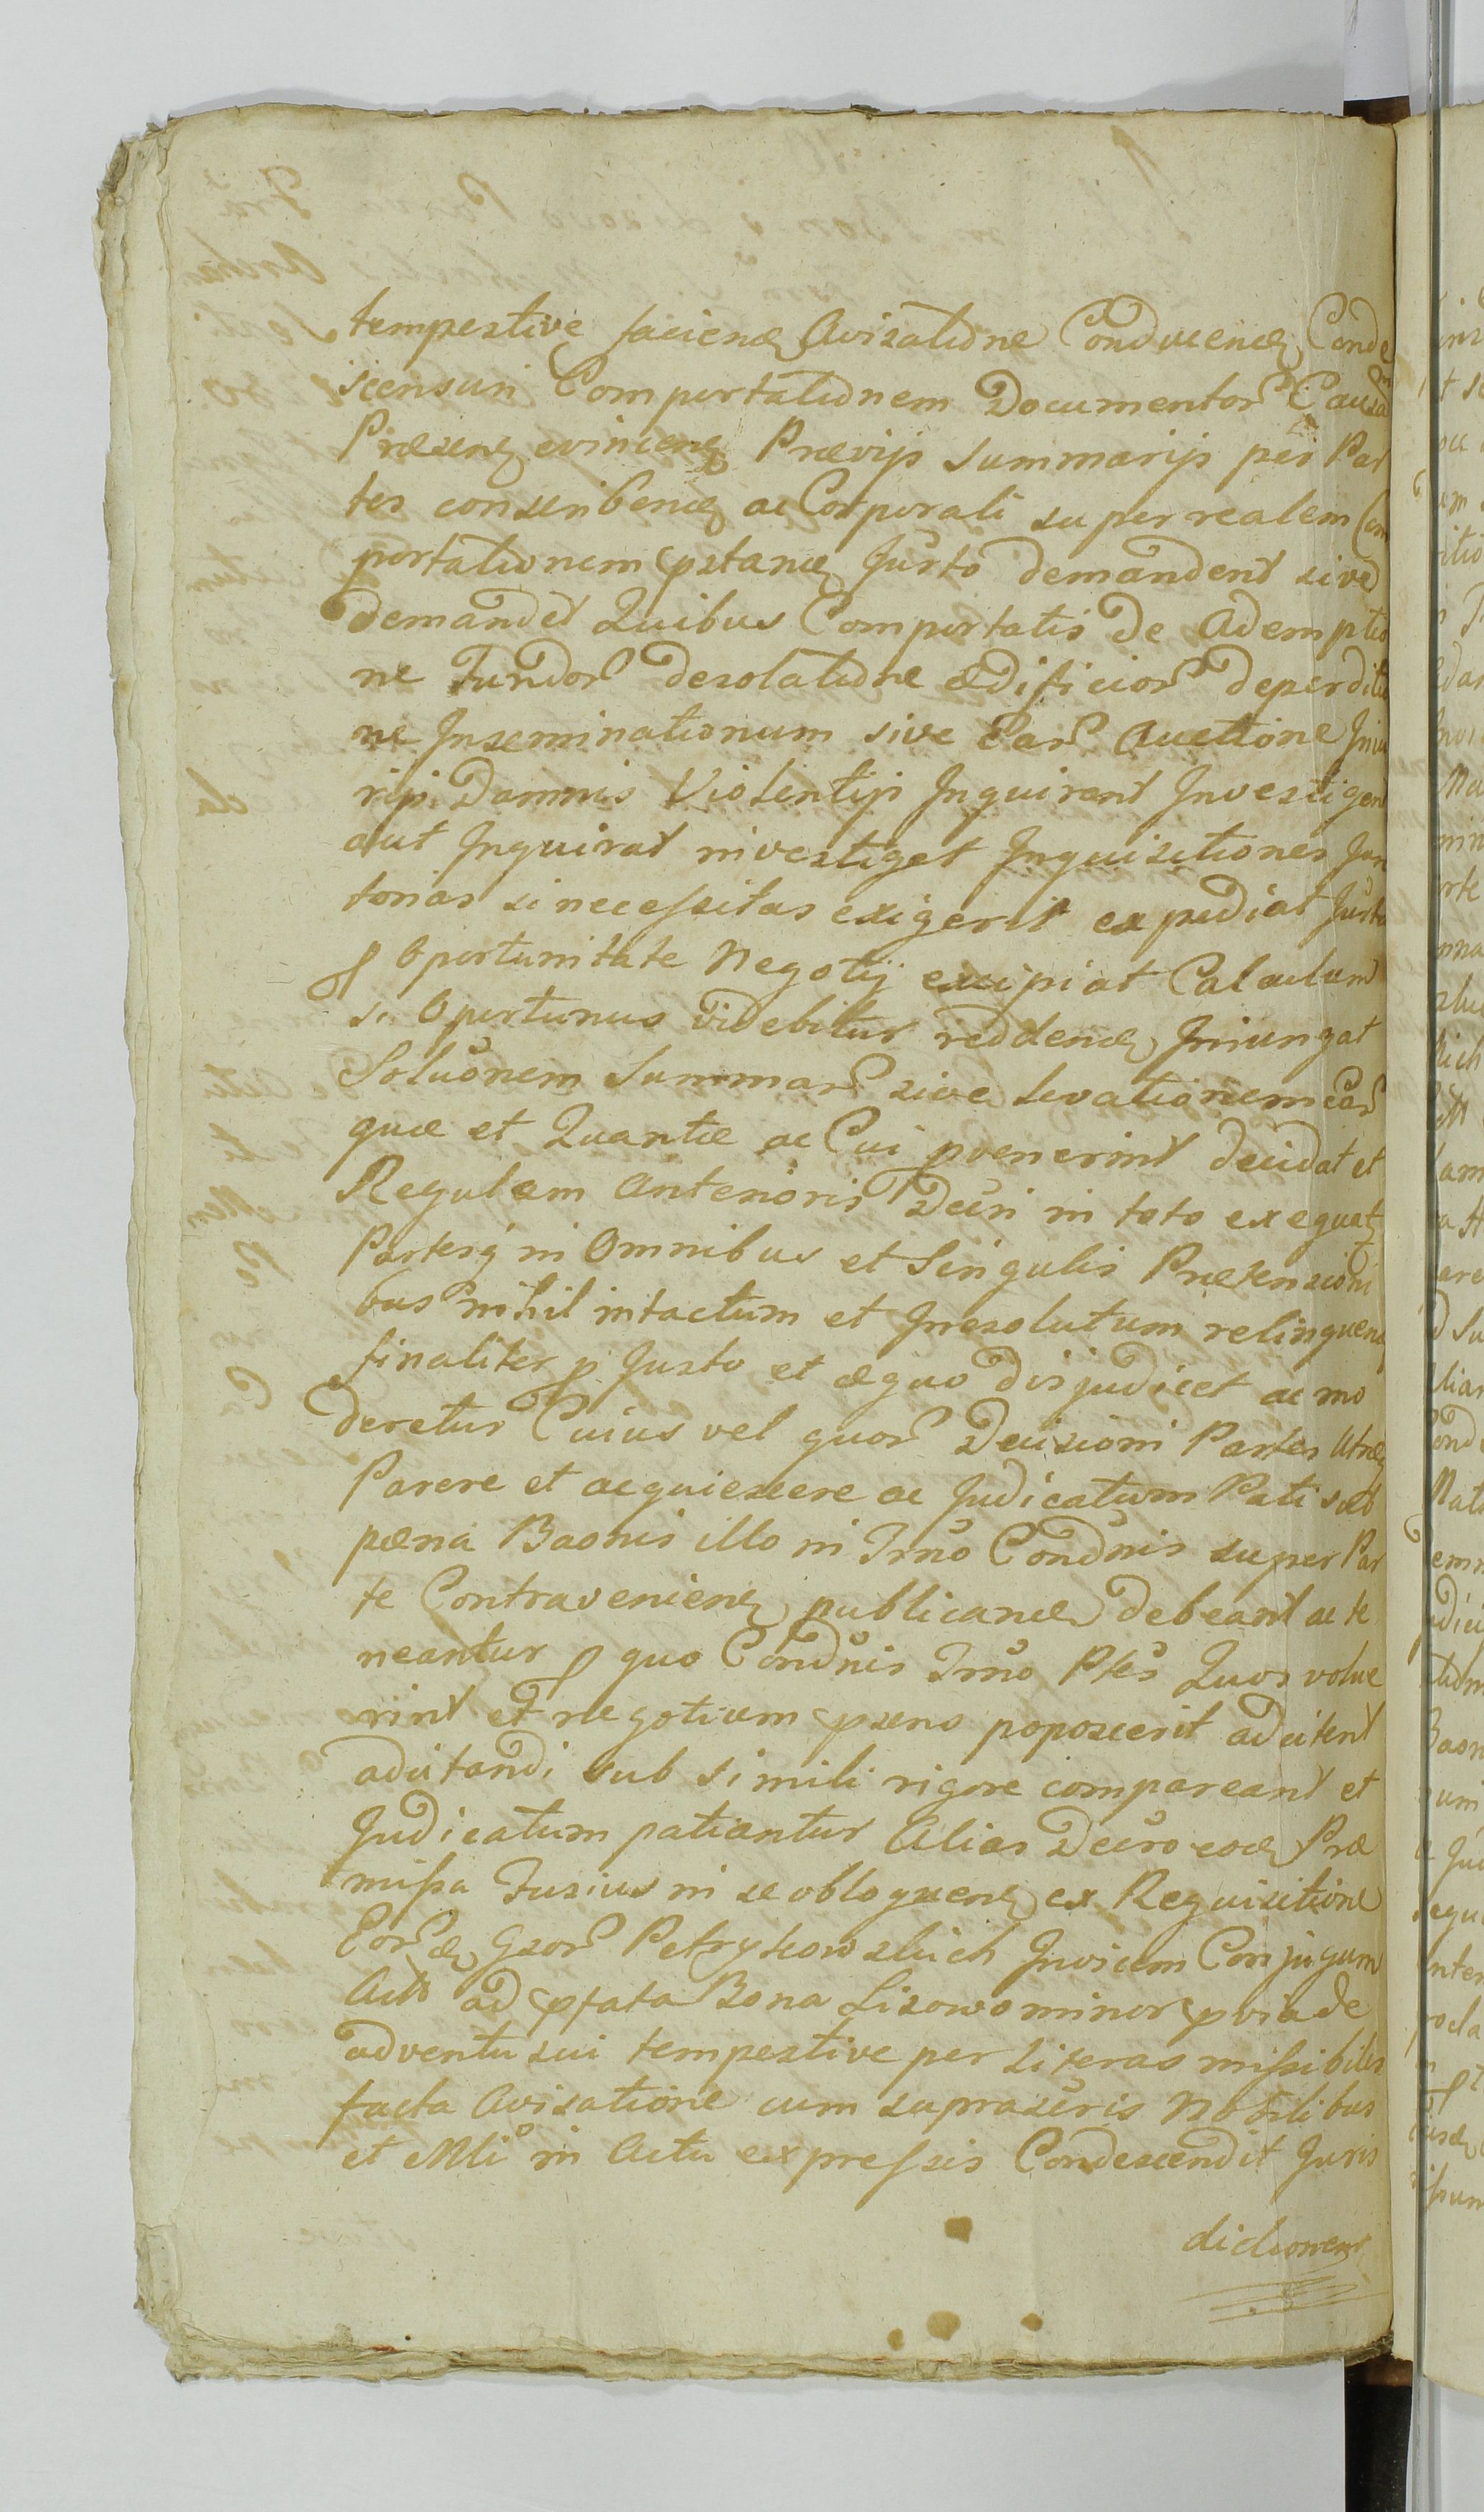 tempestive faciend Avisatione Conducend Conde
scensuri Comportationem Documentor Causa
Præsens evincens Prævijs Summarijs per Par
tes conscribend ac Corporali super realem Com
portationem pstand Jurto demandent sive
demandet Quibus Comportatis de Ademptio
ne Fundor desolatione ædificior deperditio
ne Inseminationum sive Ear Auctione Inju
rijs Damnis Violentijs Inquirent Investigent
aut Inquirat investiget Inquisitiones Jura
torias si necessitas exigerit expediat Jurta
p Oportunitate Negotij excipiat Calculum
si Oportunus videbitur reddend Injungat
Soluonem Summar sive levationem ear
quæ et Quantæ ac Cui pvenerint decidat et
Regulam Anterioris Decri in toto exequat
Partesq in Omnibus et Singulis Prætensioni
bus nihil intactum et Irresolutum relinquend
finaliter p Justo et æquo disjudicet ac mo
deretur Cuius vel quor Decisioni Partes Utræq
Parere et acquiescere ac Judicatum Pati sub
pæna Baonis illo in Trno Condnis super Par
te Contravenien publicand debeant ac te
neantur p quo Condnis Trno Ptes Quos volue
rint et negotium psens poposcerit adcitent
adcitandi sub simili rigore compareant et
Judicatum patiantur Alias Decro eod Præ
missa Fusius in se obloquen ex Requisitione
Eor Gsor Petrykowskich Invicem Conjugum
Actis ad pfata Bona Lisowo minor pvia de
adventu sui tempestive per Literas missibiles
facta Avisatione cum suprascris Nobilibus
et Mli in Actu expressis Condescendit Juris
dictionem